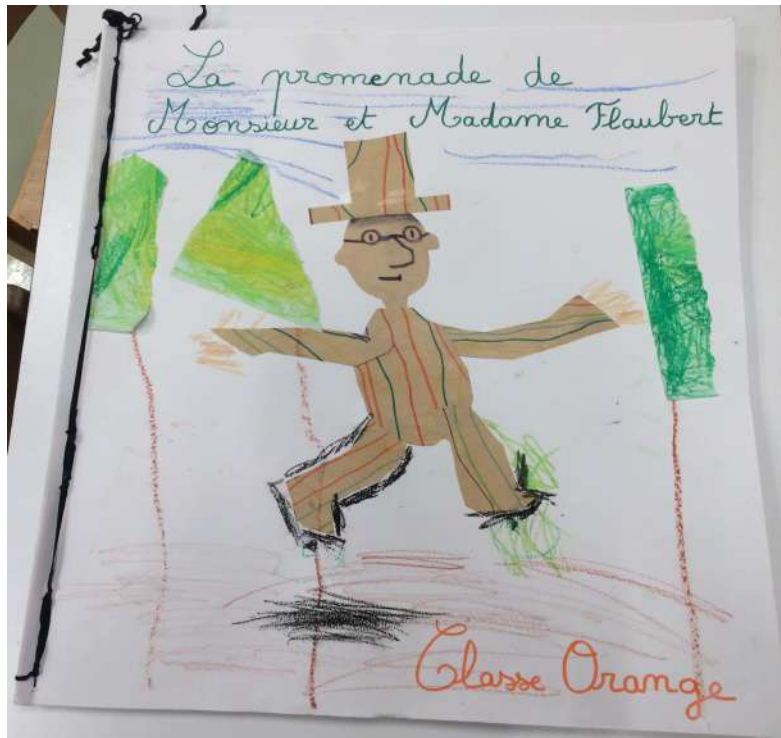 La promenade de
Monsieur et Madame Flaubert
Classe Orange